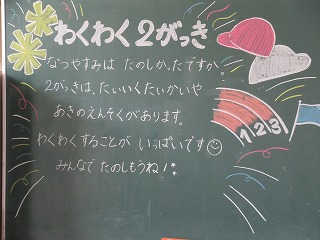 わくわく2がっき
なつやすみは たのしかったですか。
2がっきは、たいいくたいかいや
あきのえんそくがあります。
わくわくすることが いっぱいです
みんなで たのしもうね!
1 2 3